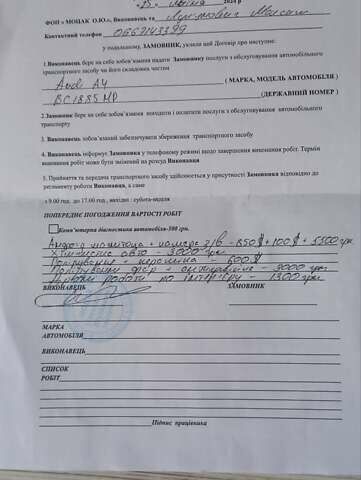 «15» липня 2024 р
ФОП « МОЦАК О.Ю.», Виконавець та
Контактний телефон 0662143399
у подальшому, ЗАМОВНИК, уклали цей Договір про наступне:
1.Виконавець бере на себе зобов'язання надати Замовнику послуги з обслуговування автомобільного
транспортного засобу чи його складних частин
Audi A4 ( МАРКА, МОДЕЛЬ АВТОМОБІЛЯ )
(ДЕРЖАВНИЙ НОМЕР )
2.Замовник бере на себе зобов'язання виконати і оплатити послуги з обслуговування автомобільного
транспорту
3. Виконавець зобов'язаний забезпечувати збереження транспортного засобу
4. Виконавець інформує Замовника у телефоному режимі щодо завершення виконання робіт. Термін
виконання робіт може бути змінений на розсуд Виконавця
5. Прийняття та передача транспортного засобу здійснюється у присутності Замовника відповідно до
регламенту роботи Виконавця, а саме
з 9.00 год. до 17.00 год , вихідні : субота-неділя
ПОПЕРЕДНЄ ПОГОДЖЕННЯ ВАРТОСТІ РОБІТ
Комп'ютерна діагностика автомобіля-500 грн.
- 850 $ + 100 $ + 5500 грн
Хімчистка авто - 3000 грн
Полірування + кераміка - 600 $
Полірування фар + - 3000 грн
роботи по інтер'єру - 1300 грн
ВИКОНАВЕЦЬ ЗАМОВНИК
МАРКА
АВТОМОБІЛЯ
ВИКОНАВЕЦЬ
СПИСОК
РОБІТ
Підпис працівника